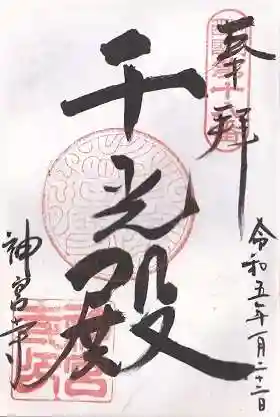 奉拝
千光殿
令和五年一月二十二日
神宮寺